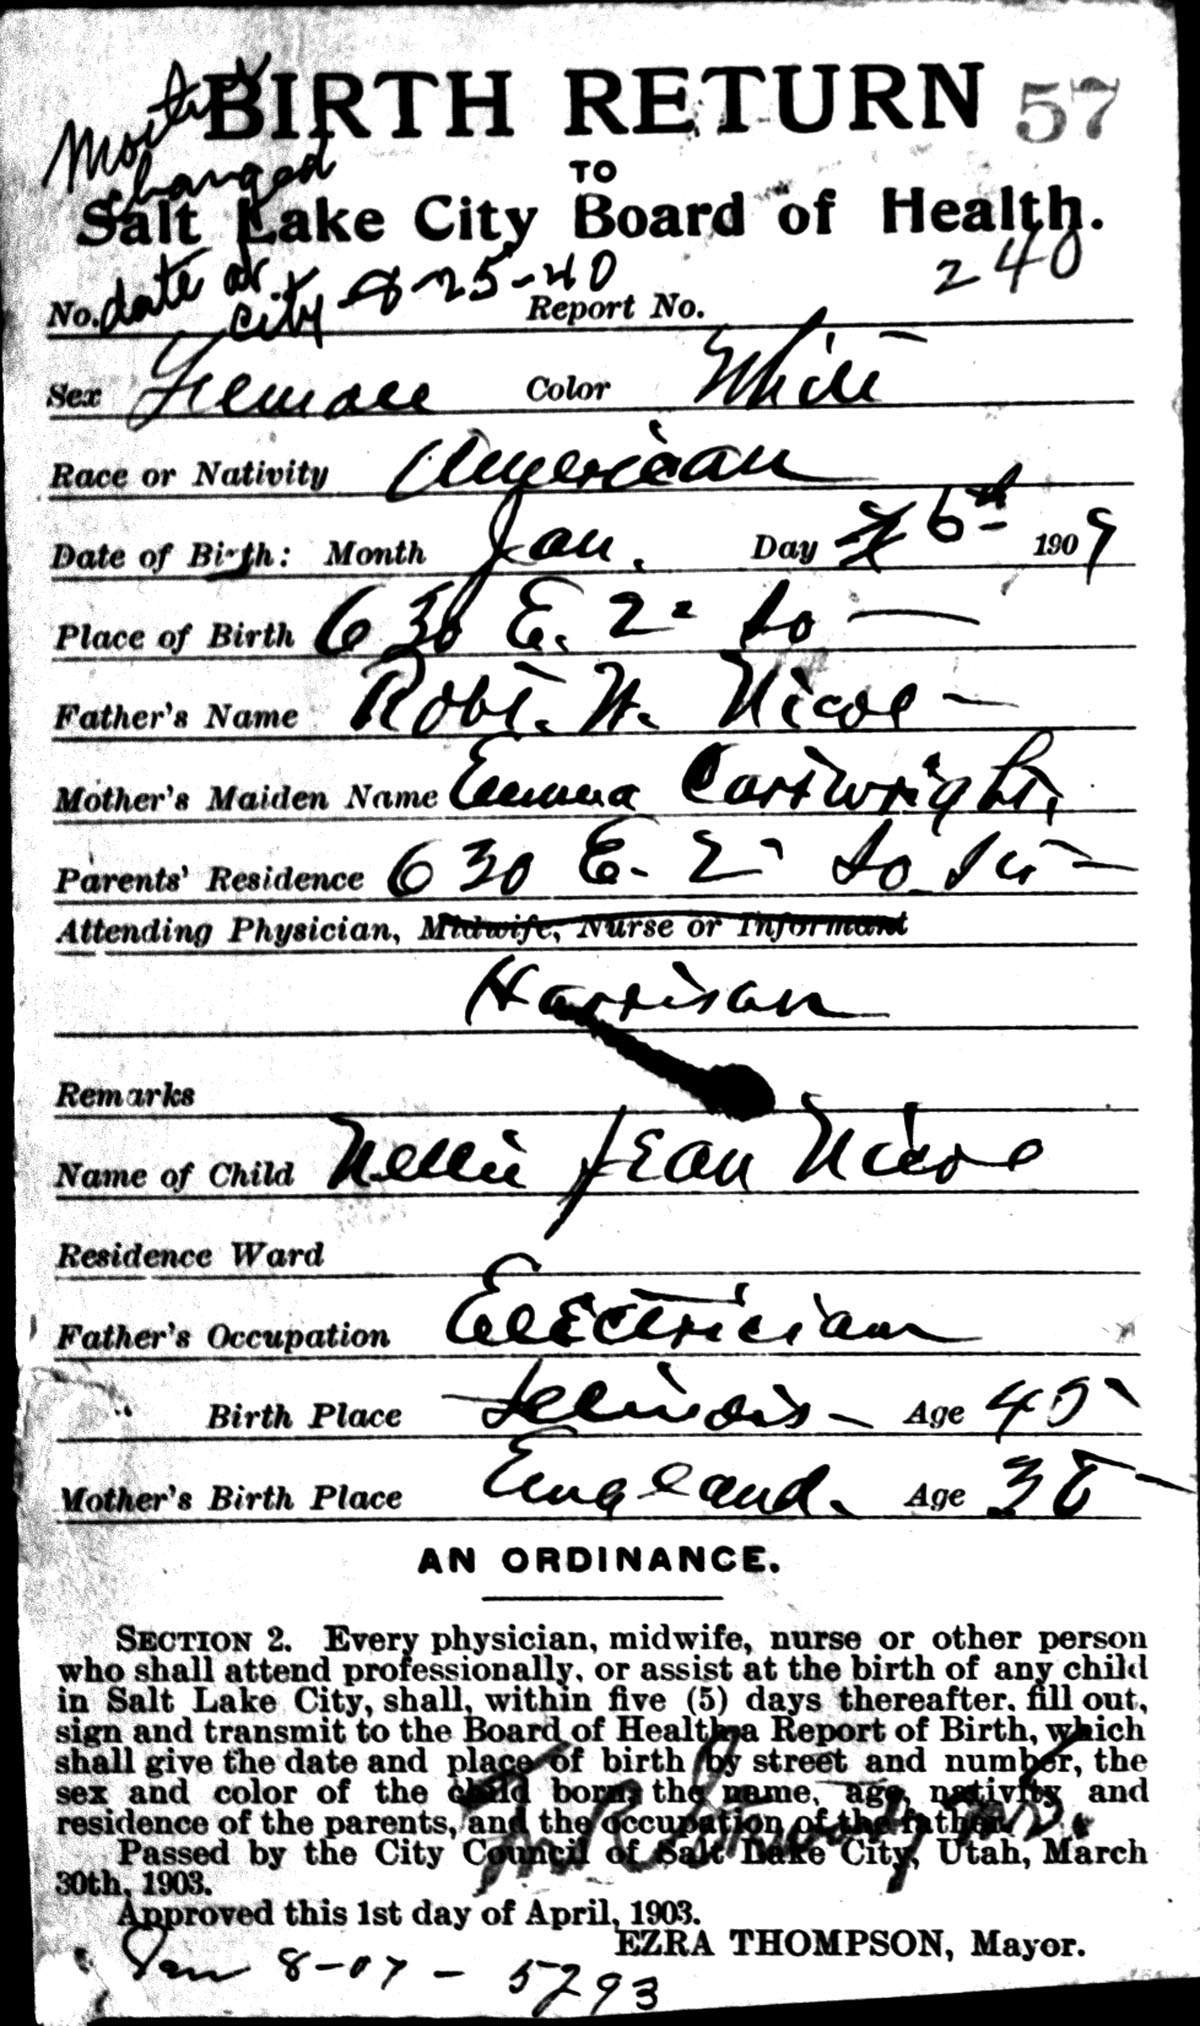 BIRTH RETURN 57
TO
Salt Lake City Board of Health.
changed
date at
city 8-25-40
No. Report No. 240
Sex Female Color White
Race or Nativity American
Date of Birth: Month Jan. Day 6th 1907
Place of Birth 630 E. 2" So
Father's Name Robt. W. Nicol
Mother's Maiden Name Emma Cartwright,
Parents' Residence 630 E. 2" So
Attending Physician, Midwife, Nurse or Informant
Harrison
Remarks
Name of Child Nellie Jean Nicol
Residence Ward
Father's Occupation Electrician
" Birth Place Illinois Age 45
Mother's Birth Place England. Age
AN ORDINANCE.
SECTION 2. Every physician, midwife, nurse or other person
who shall attend professionally, or assist at the birth of any child
in Salt Lake City, shall, within five (5) days thereafter, fill out,
sign and transmit to the Board of Health a Report of Birth, which
shall give the date and place of birth by street and number, the
sex and color of the child born, the name, age, nativity and
residence of the parents, and the occupation of the father.
Passed by the City Council of Salt Lake City, Utah, March
30th, 1903.
Approved this 1st day of April, 1903.
EZRA THOMPSON, Mayor.
Jan 8-07 - 5793